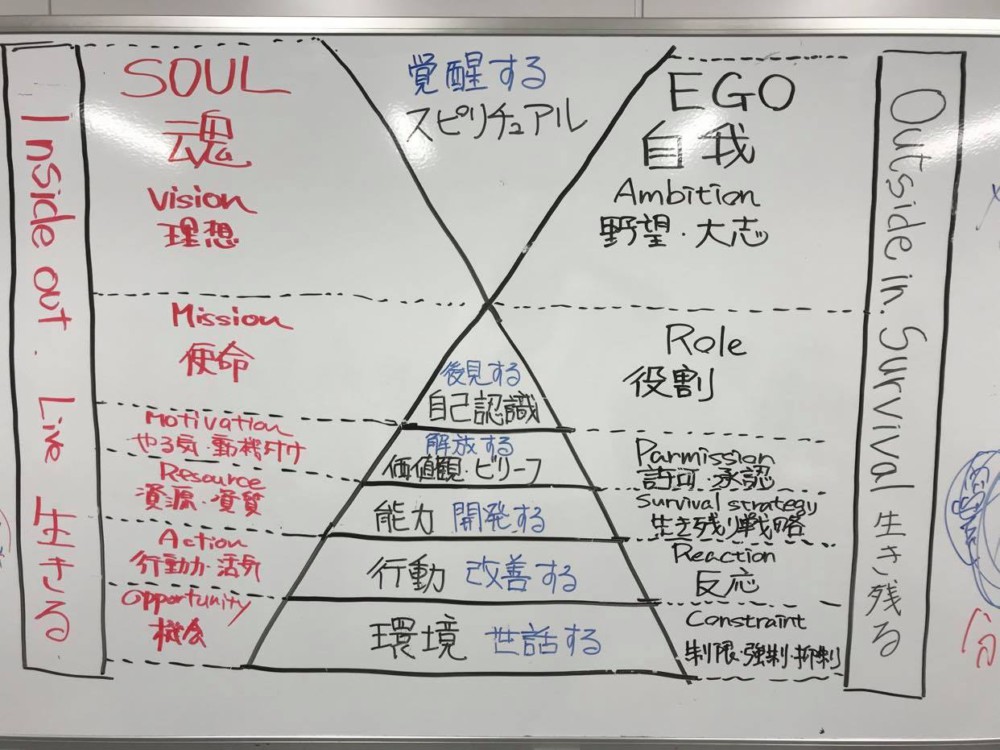 Inside out. Live 生きる
SOUL
魂
Vision
理想
Mission
使命
Motivation
やる気・動機付け
Resource
資源・資質
Action
行動力・活力
Opportunity
機会
覚醒する
スピリチュアル
後見する
自己認識
解放する
価値観・ビリーフ
能力 開発する
行動 改善する
環境 世話する
EGO
自我
Ambition
野望・大志
Role
役割
Parmission
許可・承認
Survival strategy
生き残り戦略
Reaction
反応
Constraint
制限・強制・抑制
Outside in. Survival 生き残る